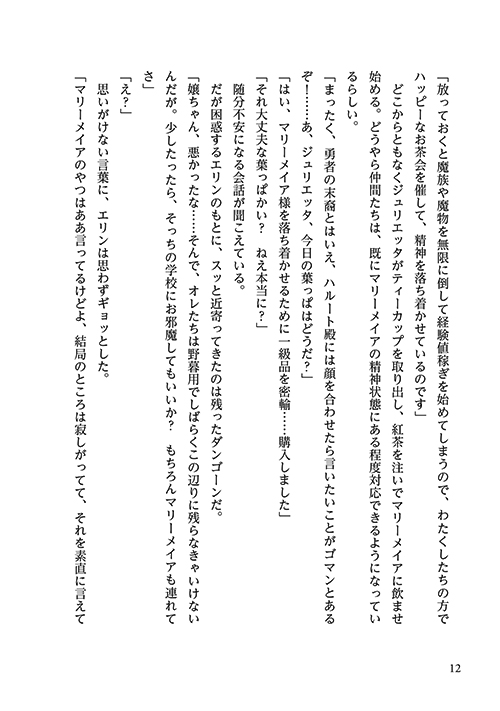 「放っておくと魔族や魔物を無限に倒して経験値稼ぎを始めてしまうので、わたくしたちの方で
ハッピーなお茶会を催して、精神を落ち着かせているのです」
どこからともなくジュリエッタがティーカップを取り出し、紅茶を注いでマリーメイアに飲ませ
始める。どうやら仲間たちは、既にマリーメイアの精神状態にある程度対応できるようになってい
るらしい。
「まったく、勇者の末裔とはいえ、ハルート殿には顔を合わせたら言いたいことがゴマンとある
ぞ！……あ、ジュリエッタ、今日の葉っぱはどうだ？」
「はい、マリーメイア様を落ち着かせるために一級品を密輸……購入しました」
「それ大丈夫な葉っぱかい？　ねえ本当に？」
随分不安になる会話が聞こえている。
だが困惑するエリンのもとに、スッと近寄ってきたのは残ったダンゴーンだ。
「嬢ちゃん、悪かったな……そんで、オレたちは野暮用でしばらくこの辺りに残らなきゃいけない
んだが。少したったら、そっちの学校にお邪魔してもいいか？　もちろんマリーメイアも連れて
さ」
「え？」
思いがけない言葉に、エリンは思わずギョッとした。
「マリーメイアのやつはああ言ってるけどよ、結局のところは寂しがってて、それを素直に言えて
12